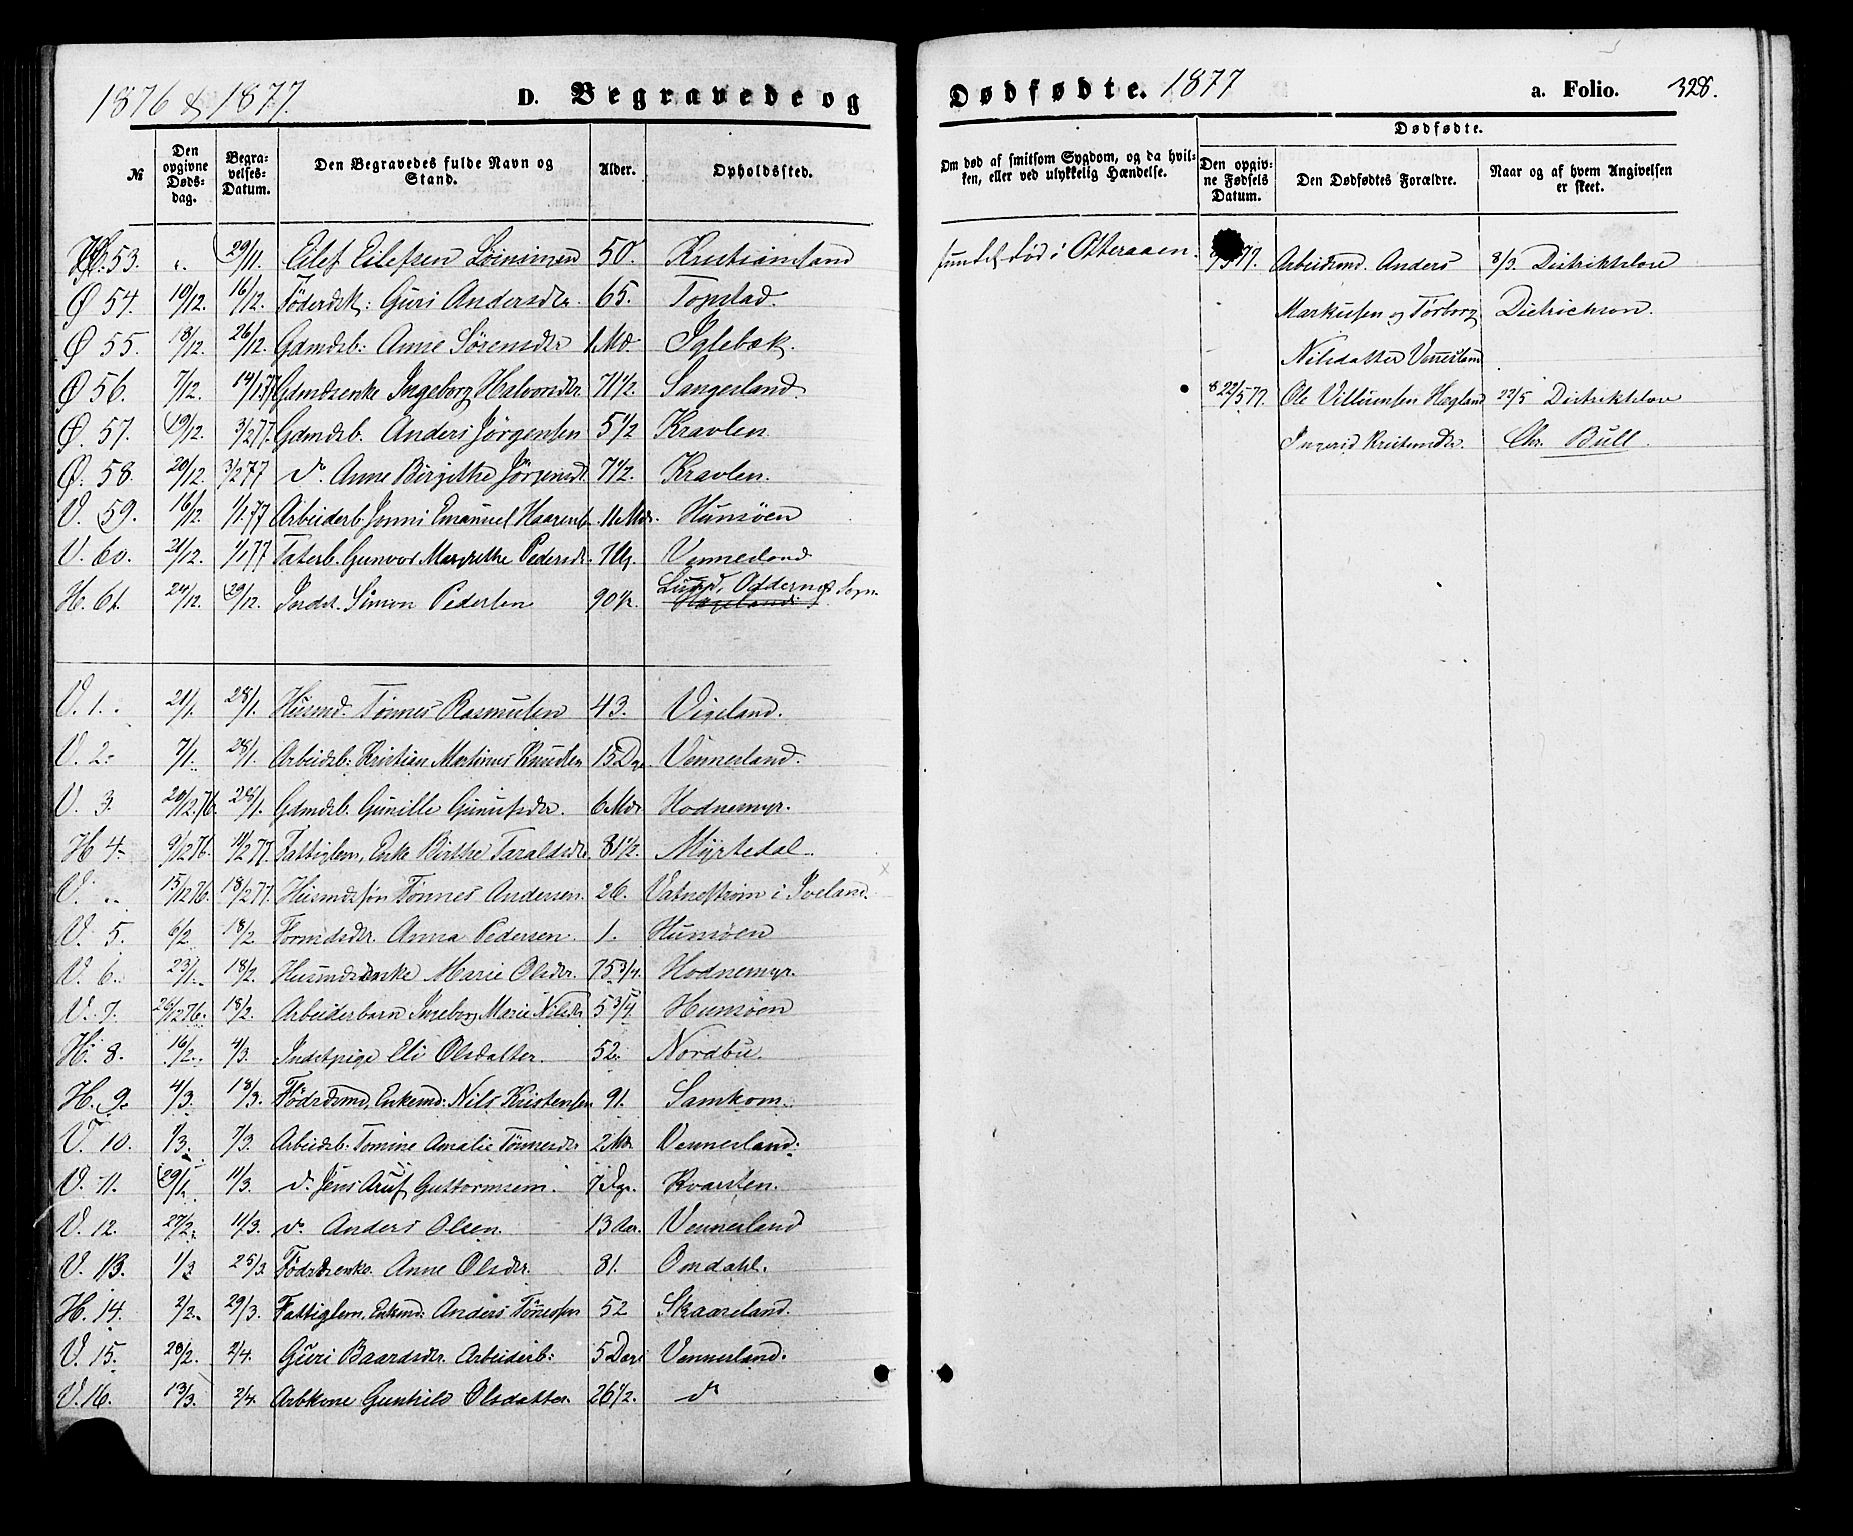 1876 & 1877.
D. Begravede og
№
Den opgivne Døds-dag.
Begra-velses-Datum.
Den Begravedes fulde Navn og Stand.
Alder.
Opholdssted.
53. „ 29/11. Eilef Eilefsen 50. Kristiansand
Ø 54. 10/12. 16/12. Föderdsk: Guri Andersdtr. 65. Topstad.
Ø 55. 18/12. 26/12. Gdmdsb: Anne Sørensdtr 1 Md. Iglebæk.
Ø 56. 7/12. 14/1 77 Gdmdsenke Ingeborg Halvorsdtr. 71 1/2. Sangesland.
Ø. 57. 19/12. 3/2 77. Gdmdsb. Anders Jörgensen 5 1/2 Kravlen.
Ø. 58. 20/12. 3/2 77 do Anne Birgithe Jörgensdt. 7 1/2. Kravlen.
V. 59. 16/12. 1/1 77 Arbeiderb. Jonni Emanuel Haarens. 11 Mdr. Hunsöen
V. 60. 21/12. 1/1 77 Taterb. Gunvor Margrethe Pedersdtr. 7 Ug. Vennesland
H. 61. 24/12. 29/12. Indst. Simon Pedersen 90 1/2. Lund, Oddernes Sogn
V. 1. 21/1. 28/1. Husmd. Tønnes Rasmusen 43. Vigeland.
V. 2. 7/1. 28/1. Arbeidsb: Kristian Martinus Knudsen 15 Dge Vennesland.
V. 3. 20/12 76. 28/1. Gdmdsb. Gunille Gunufsdtr. 6 Mdr Hodnemyr.
H 4. 9/12 76. 11/2 77. Fattiglem, Enke Birthe Taraldsdtr 81 1/2. Myrtedal.
V. „ 15/12 76. 18/2 77. Husmdssön Tønnes Andersen. 26. Vatneström i Iveland.
V. 5. 6/2 18/2. Formdsdtr. Anna Pedersen. 1. Hunsöen
V. 6. 23/1. 18/2. Husmdsenke Marie Olsdtr. 75 3/4. Hodnemyr.
V. 7. 26/12 76. 18/2. Arbeiderbarn Ingeborg Marie Nilsdtr 5 3/4. Hunsöen
H. 8. 16/2. 4/3. Indstpige Eli Olsdatter. 52. Nordbu.
H. 9. 4/3. 18/3. Födrdsmd, Enkemd: Nils Kristensen 91. Samkom.
V. 10. 1/3. 7/3. Arbeidsb: Tomine Amalie Tönnesdtr 2 Mdr Vennesland:
V. 11. 29/1. 11/3. do Jens Aruf Guttormsen. 7 Dge. Kvarsten.
V. 12. 27/2. 11/3. do Anders Olsen. 13 Dar. Vennesland
V. 13. 1/3 25/3 Födrdsenke. Anne Olsdtr. 81. Omdahl.
H. 14. 2/2. 29/3. Fattiglem, Enkmd: Anders Tönnessen 52 Skaareland.
V. 15. 28/2. 2/4. Guri Baardsdtr. Arbeiderb: 5 Dage Vennesland.
V. 16. 13/3. 2/4. Arbkone Gunhild Olsdatter. 26 1/2. do
Dødfødte. 1877
a. Folio. 328.
Om død af smitsom Sygdom, og da hvil-ken, eller ved ulykkelig Hændelse.
Dødfødte.
Den opgiv-ne Fødsels Datum.
Den Dødfødtes Forældre.
Naar og af hvem Angivelsen er skeet.
funden død i Otteraaen. Arbeidsmd. Anders 8/3. Distriktslæge
Markusen og Torborg Dietrichson.
Nilsdatter Vennesland
22/5 77. Ole Villumsen Hægland 22/5 Distriktslæge
Ingerid Kristensdtr. Chr. Bull.